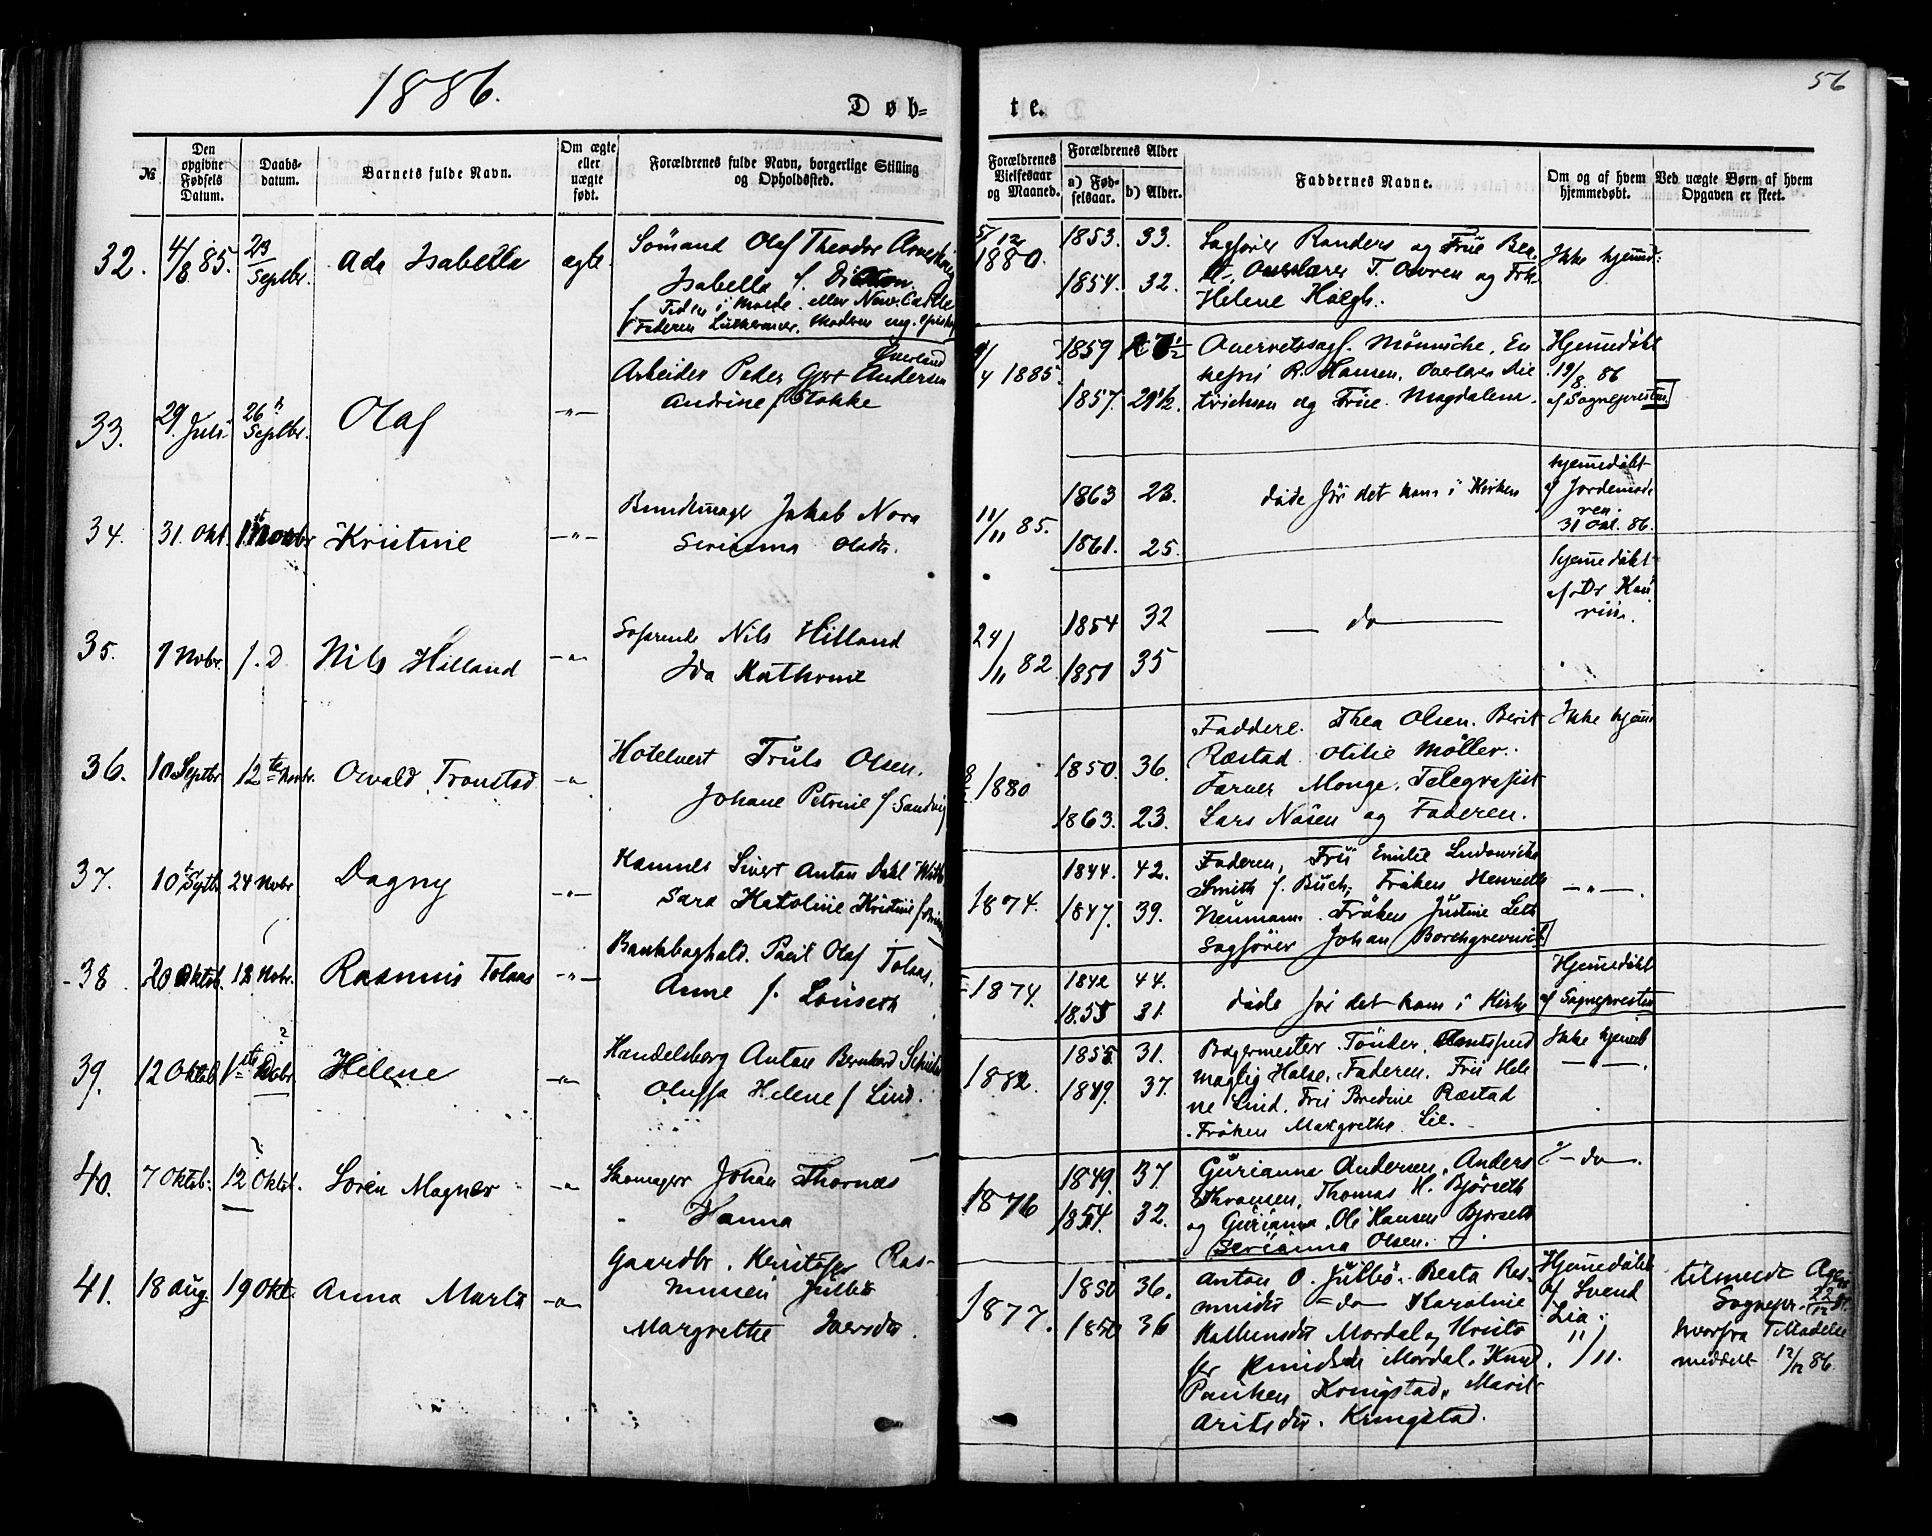 1886.
56
Døb=
te.
№
Den opgivne Fødsels Datum.
Daabs-datum.
Barnets fulde Navn.
Om ægte eller uægte født.
Forældrenes fulde Navn, borgerlige Stilling og Opholdssted.
Forældrenes Vielsesaar og Maaned.
Forældrenes Alder
a) Fødselsaar.
b) Alder.
Faddernes Navne.
Om og af hvem hjemmedøbt.
Ved uægte Børn af hvem Opgaven er skeet.
32.
4/8 85.
23 Septbr.
Ada Isabella
ægte
Sømand Olaf Theodor
Isabella f. Dickson.
i Molde eller New Castle
Faderen Lutheraner, Moderen
5/12 1880.
1853. 33.
1854. 32.
Sagfører Randers og Frue
Overlærer T. Owren og Frk.
Helene
Ikke hjemd:
33.
29. Juli
26 Septbr.
Olaf
–"–
Øverland
Arbeider Peder Gjert Andersen
Andrine f. Stokke
/4 1885
1859
1857. 29 1/2.
Overretssagf. Mønniche. En
kefru R. Hansen, Overlærer Die
trichson og Frue Magdalena.
Hjemmedøbt
19/8. 86
af Sognepresten
34.
31. Okt.
1st Novbr
Kristine
–"–
Bundtmager Jakob Nora
Serianna Olsdtr.
11/11 85.
1863 23.
1861. 25.
døde før det kom i Kirken
hjemmedøbt
af Jordemode
ren.
31 Okt. 86.
35.
7 Novbr.
f. D
Nils Hilland
–"–
Nils Hilland
Ida Kathrine
24/11 82
1854 32
1851 35
— do —
hjemmedøbt
af Dr Kau
rin.
36.
10 Septbr
12te Novbr.
Osvald Tronstad
–"
Hotelvert Truls Olsen.
Johane Petrine f. Sandvig
1880
1850. 36.
1863. 23.
Faddere. Thea Olsen. Berit
Ræstad. Otilie Møller.
Farver Monge. Telegrafist
Lars Nåsen og Faderen.
Ikke hjem
37.
10 Septbr
24 Novbr
Dagny
–"–
Sivert Anton Dahl
Sara Katoline Kristine f.
1874.
1844. 42.
1847. 39.
Faderen, Fru Emilie Ludowicka
Smith f. Buch, Frøken Henriette
Neumann. Frøken Justine
Sagfører Johan Borchgrevinck
–"–.
38
20 Oktob.
18 Novbr.
Rasmus Tolaas
–"–
Bankboghold. Paul Olaf Tolaas.
Anne f.
1874.
1842 44.
1855 31.
døde før det kom i Kirke
Hjemmedøbt
af Sognepresten
39.
12 Oktob
1ste Debr.
Helene
–"–
Handelsborg Anton Bernhard
Oluffa Helene f. Lind.
1882.
1855 31.
1849. 37.
Bagermester Tønder, Amtsfuld
mægtig Halse. Faderen. Fru Hele
ne Lind. Fru Bredine Ræstad
Frøken Margrethe Lie.
Ikke hjemd
–"–.
40.
7 Oktob.
12 Oktob.
Søren Magner
–"
Skomager Johan Thornæs
Hanna
1876
1849. 37.
1854. 32.
Gurianna Andersen. Anders
Thomas H. Bjørseth
og Gurianna. Ole Hansen Bjørseth
Serianna Olsen.
– do –.
41.
18 Aug.
19 Okt.
Anna Marta
–"
Gaardbr. Kristofer Ras-
mussen Julbø
Margrethe Iversdtr.
1877.
1850 36.
1850 36
Anton O. Julbø. Beata Ras-
musdtr – do – Karoline
Mordal og Kristo
fer Knudsen Mordal. Knud
Kringstad. Marit
Kringstad.
Hjemmedøbt
af Svend
Lia.
11/11.
tilmeldt
Sognepr. 22/12 87.
hvorfra T. Madelse
meddelt 12/12 86.